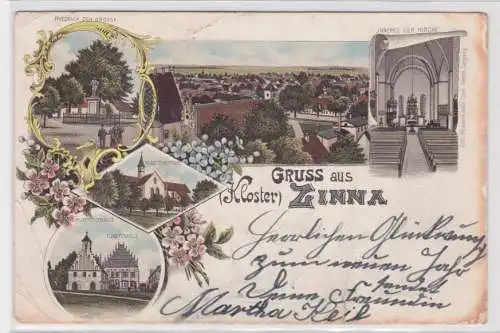 FRIEDRICH DER GROSSE
INNERES DER KIRCHE
GRUSS AUS
(Kloster) ZINNA
Herzlichen Glückwunsch
zum neuen Jahr
Deine
Freundin
Martha Keil